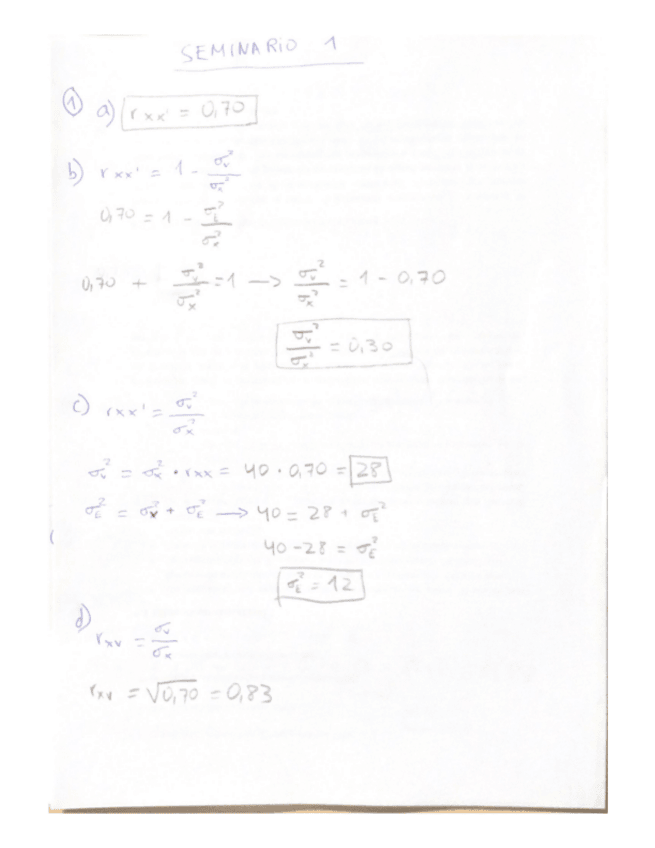 SEMINARIO 1
① a) rxx' = 0,70
b) rxx' = 1 - σv²/σx²
0,70 = 1 - σE²/σx²
0,70 + σv²/σx² = 1 → σv²/σx² = 1 - 0,70
σv²/σx² = 0,30
c) rxx' = σv²/σx²
σv² = σx² · rxx = 40 · 0,70 = 28
σE² = σx² + σE² → 40 = 28 + σE²
40 - 28 = σE²
σE² = 12
d) rxv = σv/σx
rxv = √0,70 = 0,83